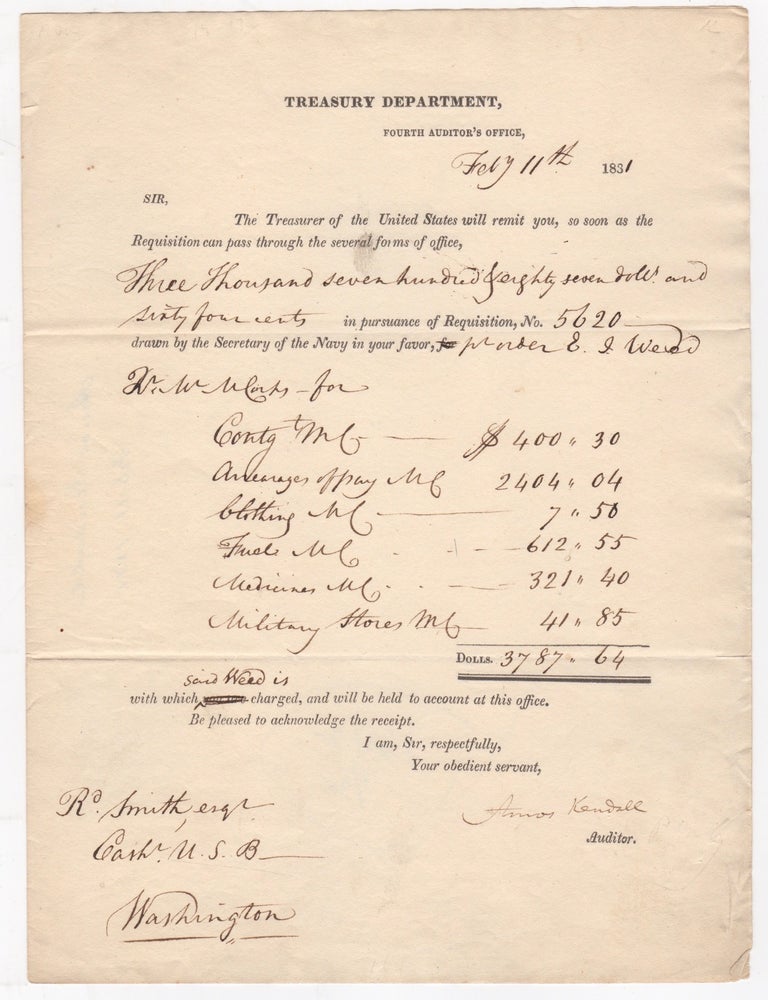 TREASURY DEPARTMENT,
FOURTH AUDITOR'S OFFICE,
Feby 11th 1831
SIR,
The Treasurer of the United States will remit you, so soon as the
Requisition can pass through the several forms of office,
Three Thousand seven hundred & eighty seven dolls. and
sixty four cents in pursuance of Requisition, No. 5620
drawn by the Secretary of the Navy in your favor, for pr order E. J. Weed
Qr. Mr. M Corps - for
Contgt M C $ 400 " 30
Arrearages of pay M C 2404 " 04
Clothing M C 7 " 50
Fuel M C 612 " 55
Medicines M C 321 " 40
Military Stores M C 41 " 85
DOLLS. 3787 " 64
said Weed is
with which charged, and will be held to account at this office.
Be pleased to acknowledge the receipt.
I am, Sir, respectfully,
Your obedient servant,
Amos Kendall
Auditor.
Rd. Smith, esqr.
Cashr. U. S. B
Washington